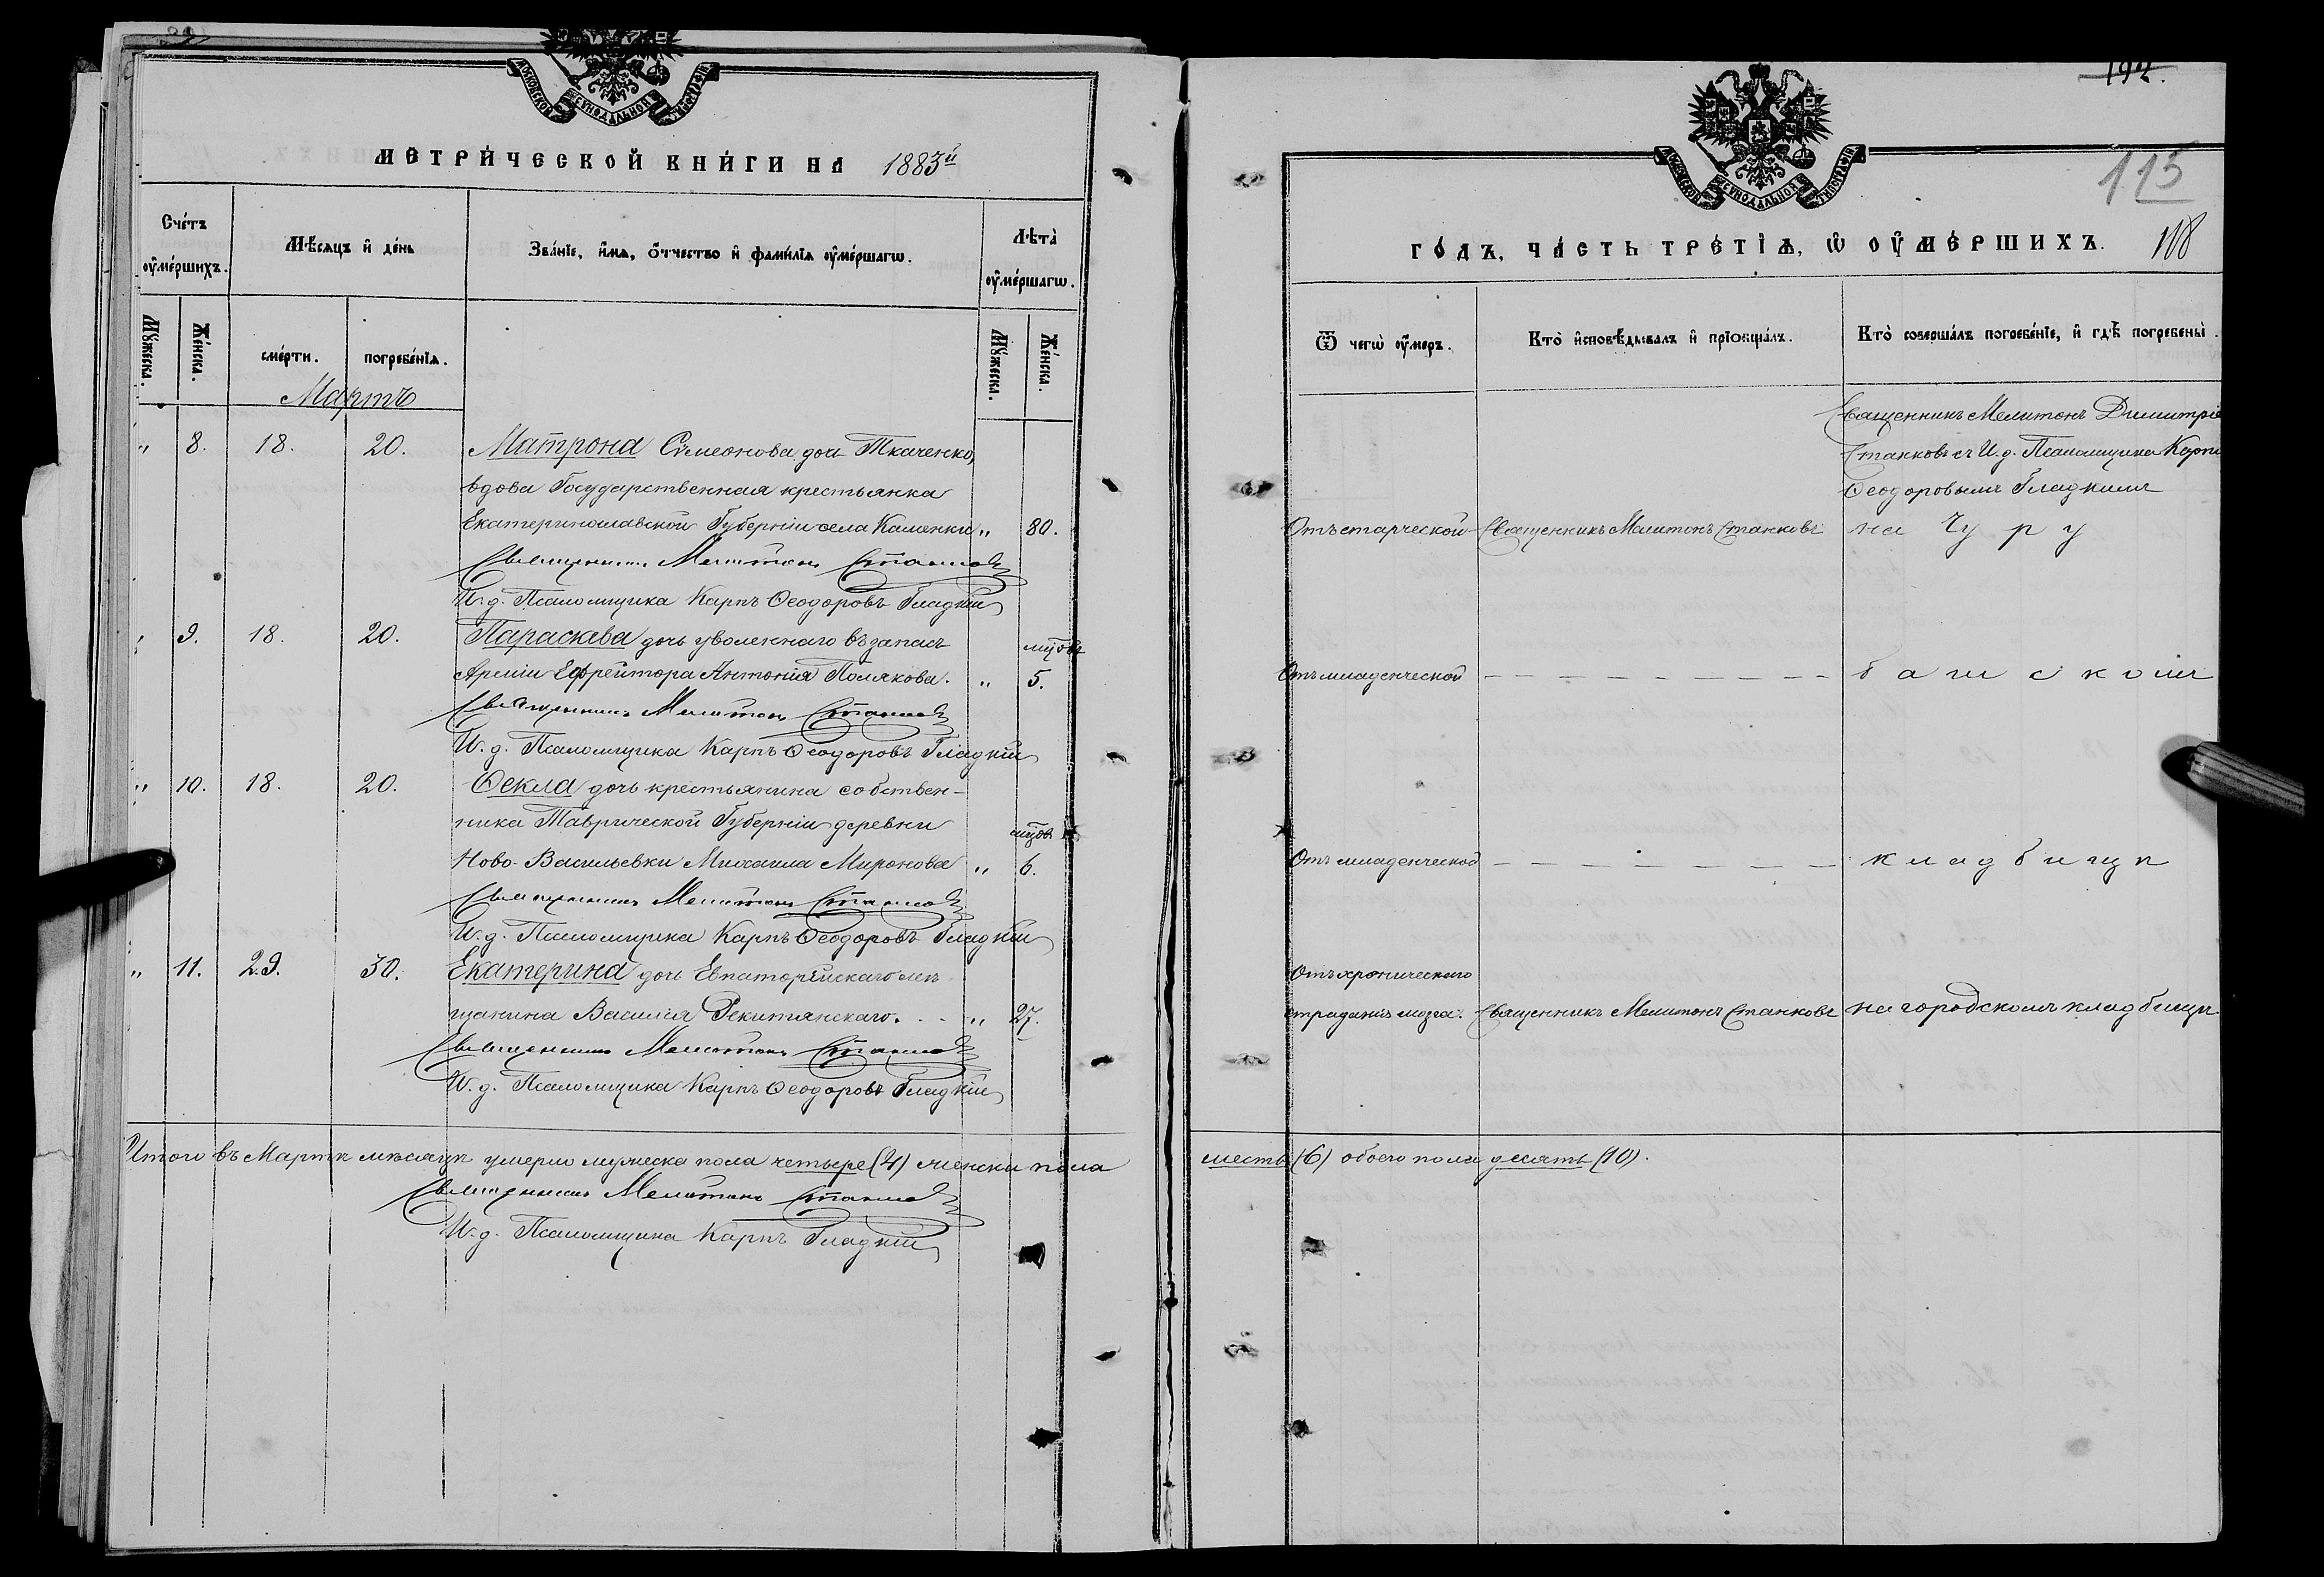 МЕТРИ́ЧЕСКОЙ КНИ́ГИ НА 1883й
Сче́тъ оу҆ме́ршихъ.
Мѣ́сяцъ и҆ де́нь
Зва́нїе, и҆́мѧ, ѻ҆́тчество и҆ фами́лїѧ оу҆ме́ршагѡ.
Лѣта̀ оу҆ме́ршагѡ.
Мꙋ́жеска.
Же́нска.
сме́рти.
погребе́нїѧ.
Мꙋ́жеска.
Же́нска.
Мартъ
„ 8. 18. 20. Матрона Сѵмеонова дочь Ткаченко,
вдова Государственная крестьянка
Екатеринославской Губерніи села Каменки „ 80.
Священникъ Мелитонъ Станковъ
И. д. Псаломщика Карпъ Ѳеодоровъ Гладкій
„ 9. 18. 20. Параскева дочь уволеннаго въ запасъ
мцовъ
Арміи Ефрейтора Антонія Полякова. „ 5.
Священникъ Мелитонъ Станковъ
И. д. Псаломщика Карпъ Ѳеодоровъ Гладкій
„ 10. 18. 20. Ѳекла дочь крестьянина собствен-
ника Таврической Губерніи деревни
мцовъ
Ново-Васильевки Михаила Миронова „ 6.
Священникъ Мелитонъ Станковъ
И. д. Псаломщика Карпъ Ѳеодоровъ Гладкій
„ 11. 29. 30. Екатерина дочь Евпаторійскаго мѣ-
щанина Василія Рекитянскаго. „ 27.
Священникъ Мелитонъ Станковъ
И. д. Псаломщика Карпъ Ѳеодоровъ Гладкій
Итого въ Мартѣ мѣсяцѣ умерло мужеска пола четыре (4) женска пола
Священникъ Мелитонъ Станковъ
И. д. Псаломщика Карпъ Гладкій
115
118
ГО́ДЪ, ЧА́СТЬ ТРЕ́ТЇѦ, Ѡ҆ ОУ҆МЕ́РШИХЪ.
Ѿ чегѡ̀ оу҆́меръ.
Кто̀ и҆сповѣ́дывалъ и҆ прїѻбща́лъ.
Кто̀ соверша́лъ погребе́нїе, и҆ гдѣ̀ погребены̀.
Священникъ Мелитонъ Димитріе
Станковъ съ И. д. Псаломщика Карпо
Ѳеодоровымъ Гладкимъ
Отъ старческой Священникъ Мелитонъ Станковъ на Чуру
Отъ младенческой — — — — — — — — башскомъ
Отъ младенческой — — — — — — — кладбищѣ
Отъ хроническаго
страданія мозга. Священникъ Мелитонъ Станковъ на городскомъ кладбищѣ.
шесть (6) обоего пола десять (10).